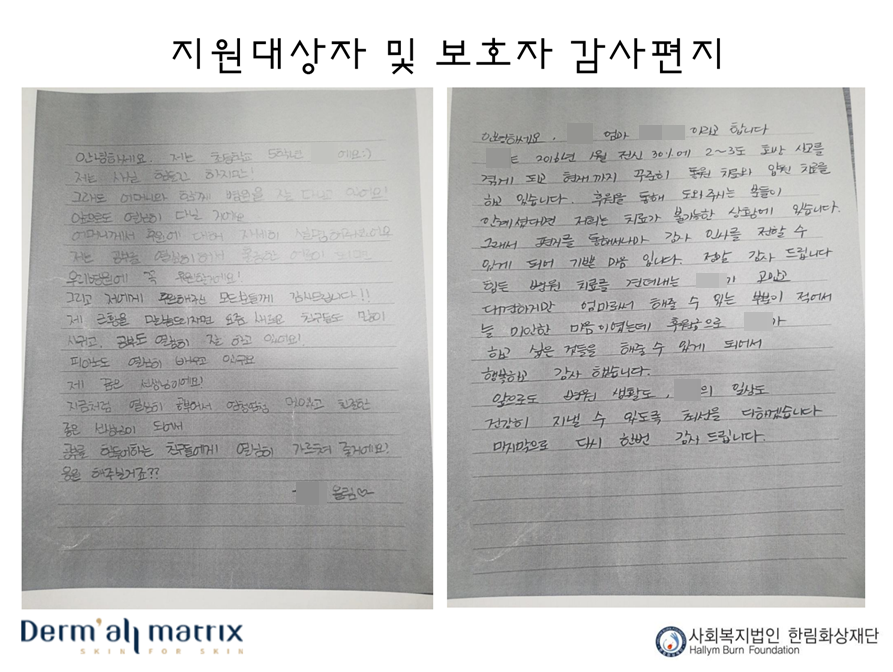 지원대상자 및 보호자 감사편지
안녕하세요. 저는 초등학교 5학년 예요:)
저는 사실 힘들긴 하지만!
그래도 어머니와 함께 병원을 잘 다니고 있어요!
앞으로도 열심히 다닐 거예요
어머니께서 후원에 대해 자세히 설명해주셨어요
저는 공부를 열심히해서 훌륭한 어른이 되면
우리병원에 꼭 후원할게요!
그리고 저에게 후원해주신 모든분들께 감사드립니다!!
제 근황을 말씀드리자면 요즘 새로운 친구들도 많이
사귀고, 공부도 열심히 잘 하고 있어요!
피아노도 열심히 배우고 있구요
제 꿈은 선생님이에요!
지금처럼 열심히 해서 멋있고 친절한
좋은 선생님이 되어서
공부를 힘들어하는 친구들에게 열심히 가르쳐 줄거예요!
응원 해주실거죠??
올림♡
안녕하세요. 엄마 이라고 합니다
는 2016년 1월 전신 30%에 2~3도 화상 사고를
겪게 되고 현재까지 꾸준히 통원 치료와 입원 치료를
하고 있습니다. 후원을 통해 도와주시는 분들이
안계셨다면 저희는 치료가 불가능한 상황에 있습니다.
그래서 편지를 통해서나마 감사 인사를 전할 수
있게 되어 기쁜 마음 입니다. 정말 감사 드립니다
힘든 병원 치료를 견뎌내는 가 고맙고
대견하지만 엄마로서 해줄 수 있는 부분이 적어서
늘 미안한 마음이였는데 후원으로 가
하고 싶은 것들을 해줄 수 있게 되어서
행복하고 감사 했습니다.
앞으로도 병원 생활도, 의 일상도
건강히 지낼 수 있도록 최선을 다하겠습니다
마지막으로 다시 한번 감사 드립니다.
Derm'all matrix
SKIN FOR SKIN
사회복지법인 한림화상재단
Hallym Burn Foundation